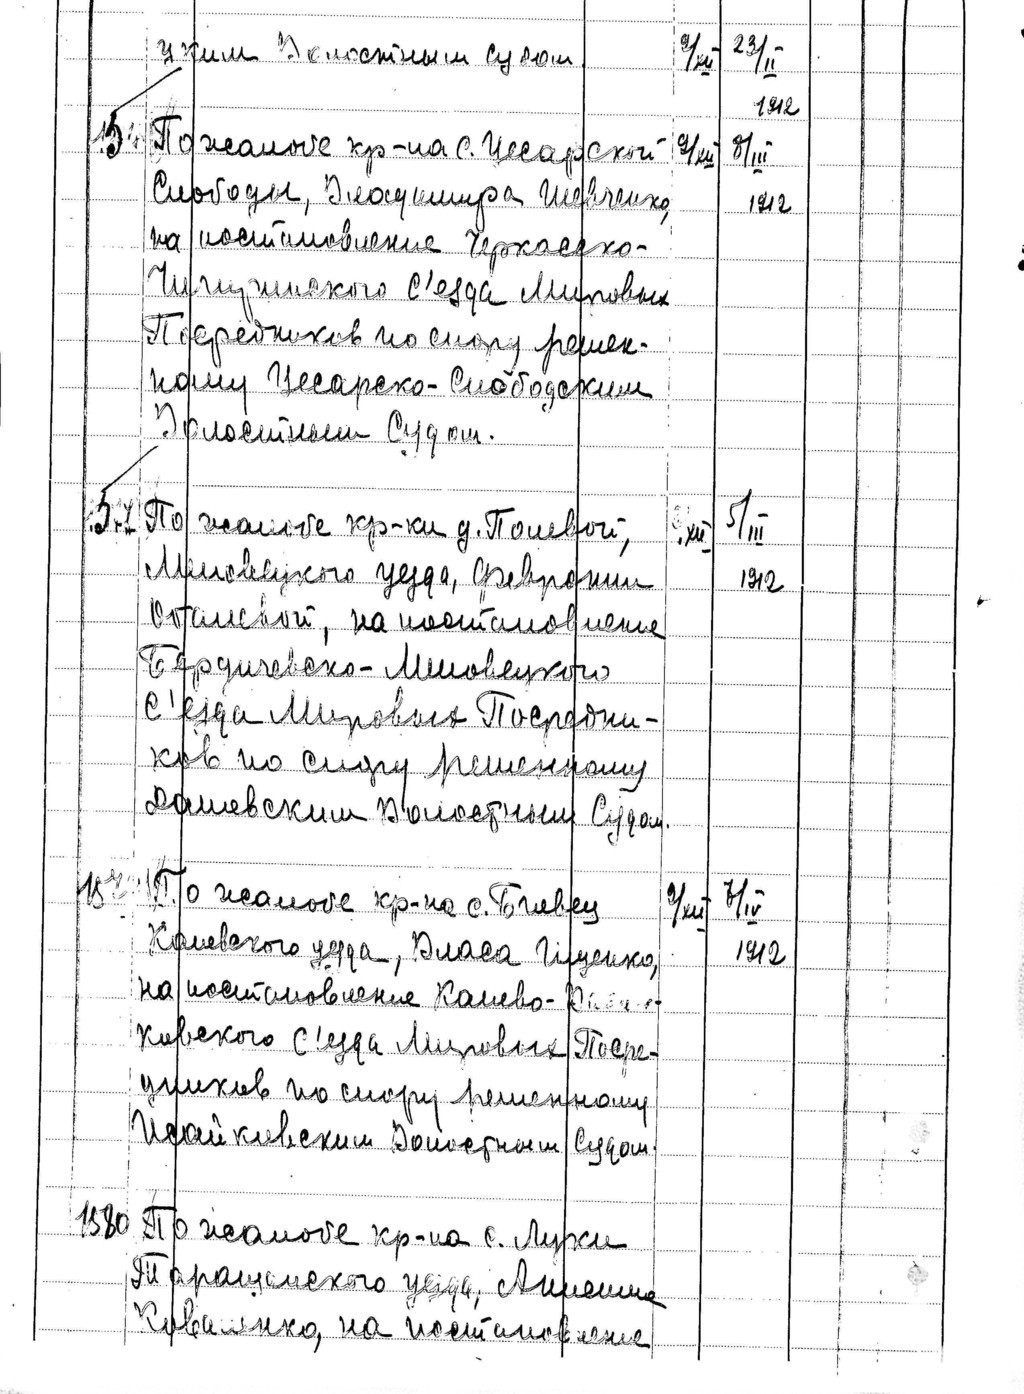 цким Волостным судом. 9/XII 23/II
1912
По жалобе кр-на с. Цесарской 9/XII 8/III
Слободы, Владимира Шевченко, 1912
на постановление Черкасско-
Чигиринского С'езда Мировых
Посредников по спору решен-
ному Цесарско-Слободским
Волостным Судом.
По жалобе кр-ки д. Полевой, XII 5/III
Липовецкого уезда, Февронии 1912
на постановление
Бердичевско-Липовецкого
С'езда Мировых Посредни-
ков по спору решенному
Дашевским Волостным Судом.
По жалобе кр-на с. 9/XII 7/IV
Каневского уезда, Власа Гиценко, 1912
на постановление Канево-
ковского С'езда Мировых Посре-
дников по спору решенному
Исайковским Волостным Судом.
1580 По жалобе кр-на с. Луки
Таращанского уезда,
Коваленко, на постановление